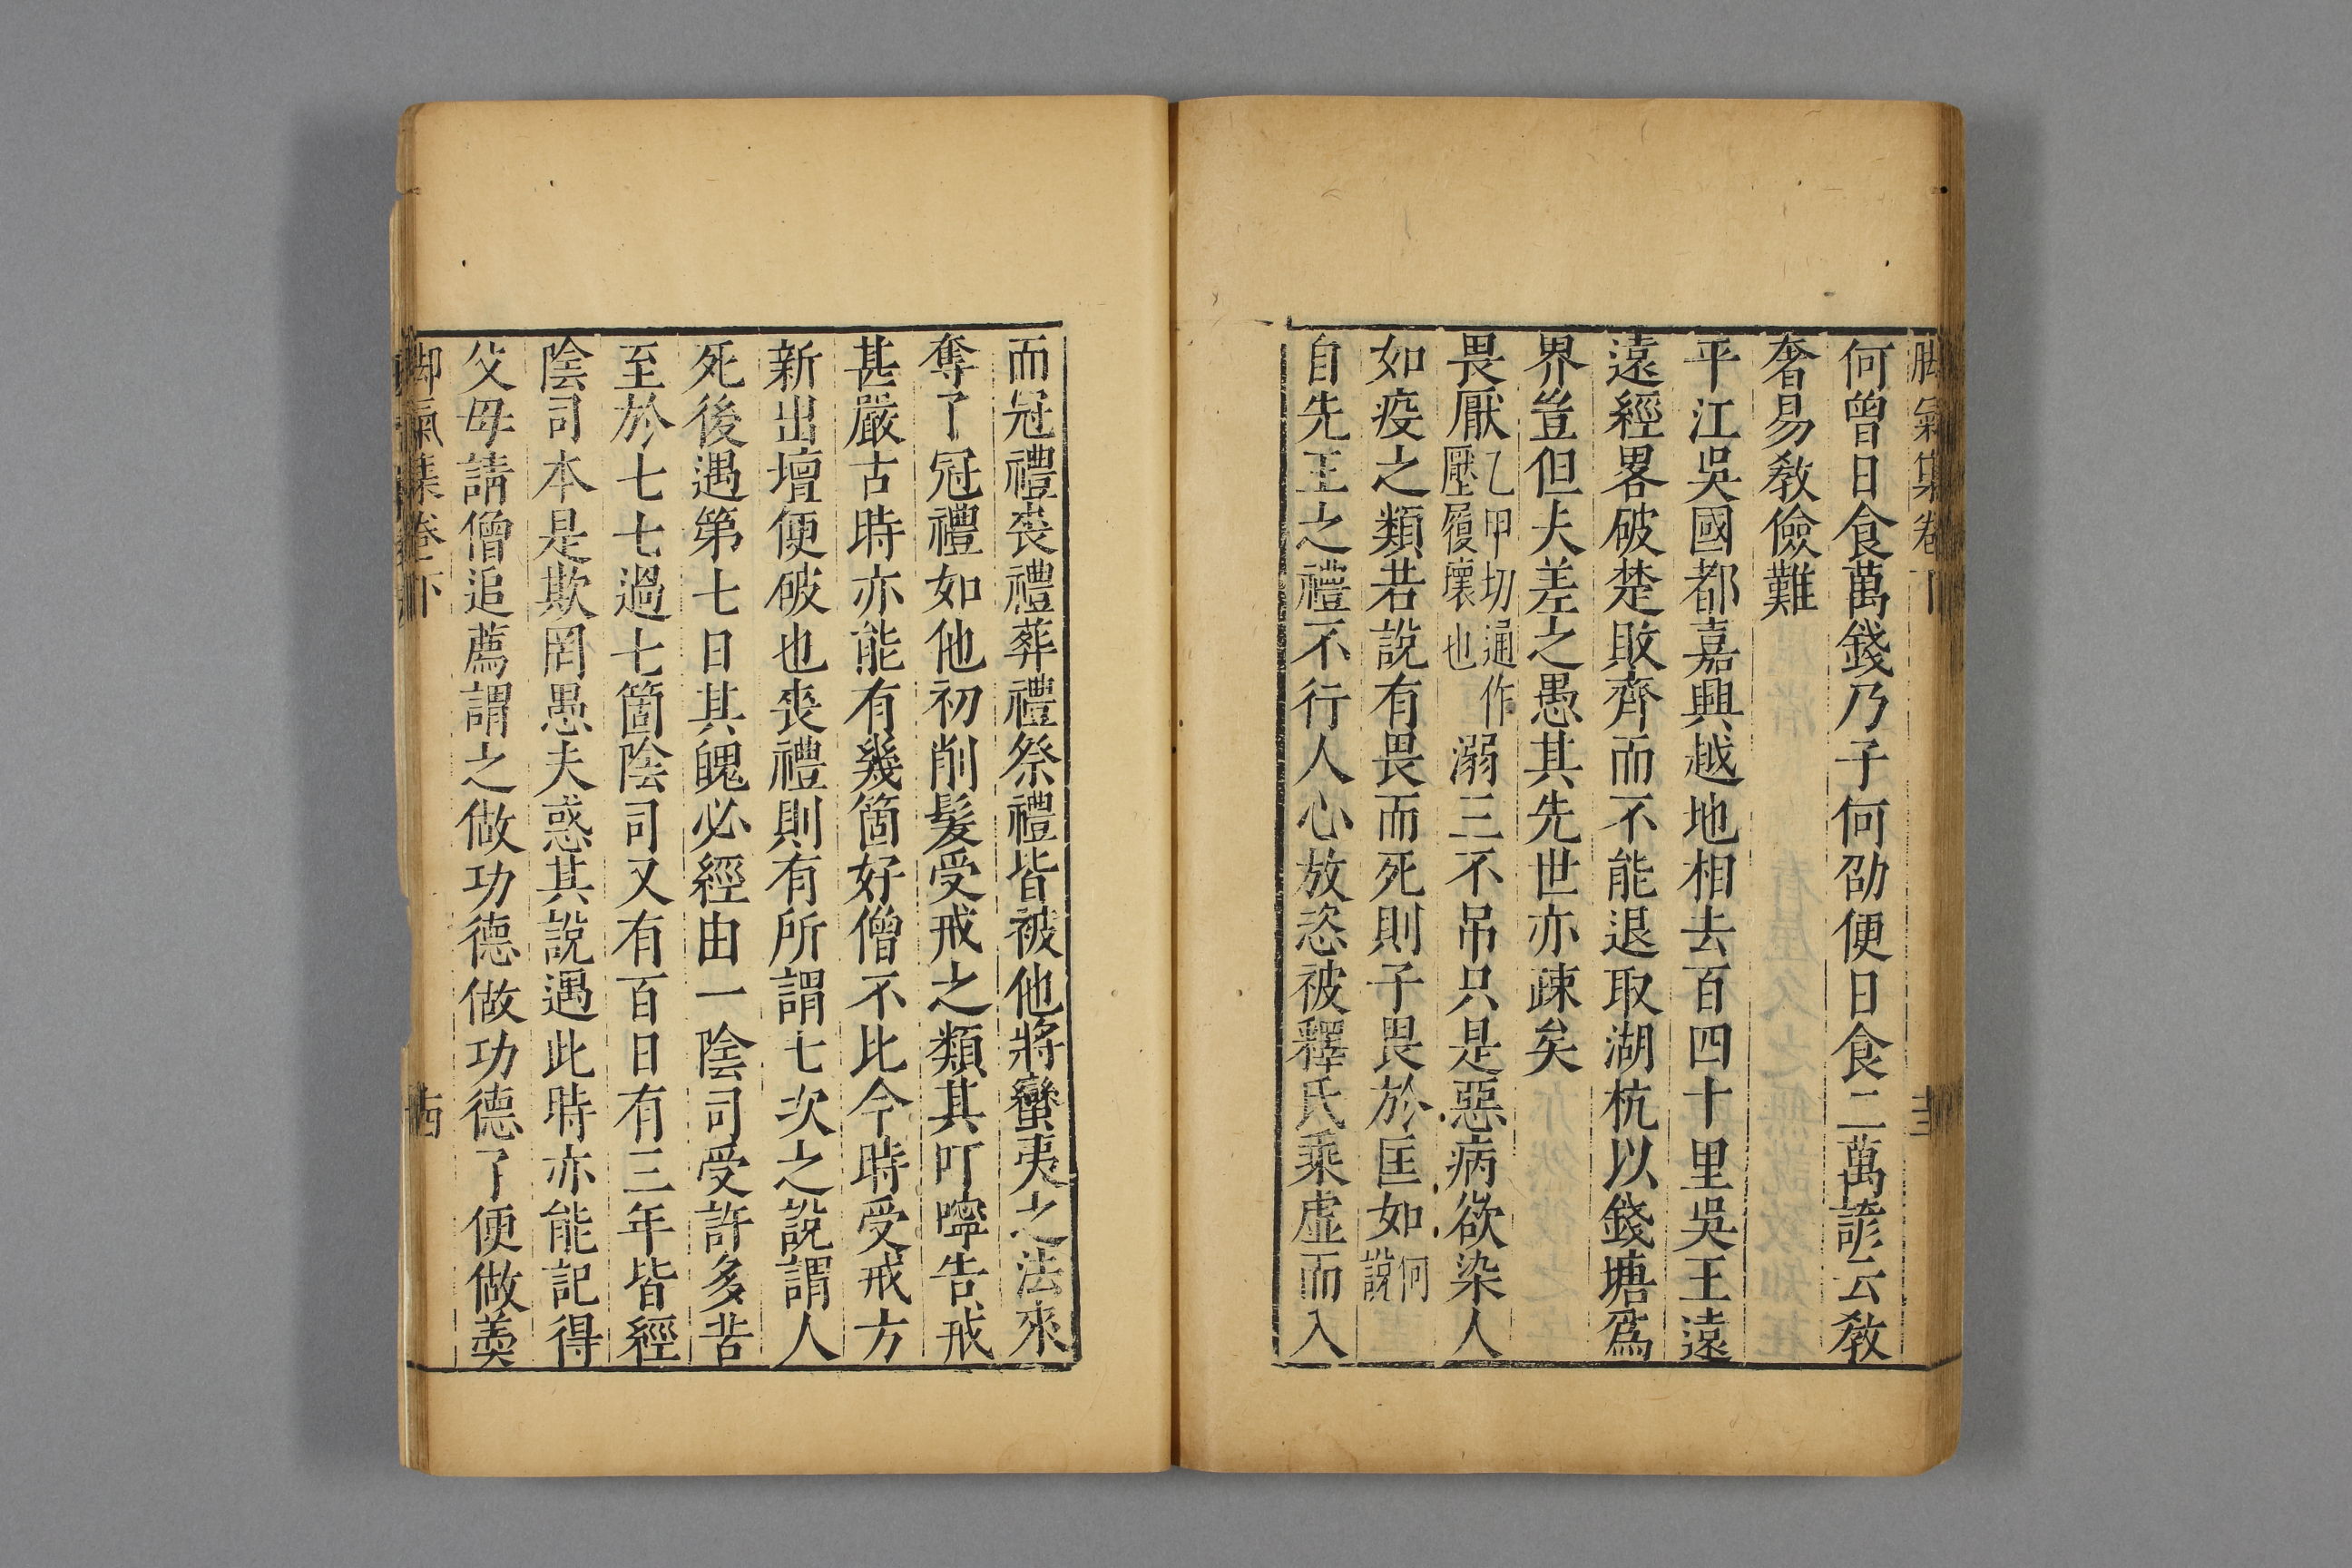 脚氣集卷下
十三
何曾日食萬錢乃子何劭便日食二萬諺云教
奢易教儉難
平江吳國都嘉興越地相去百四十里吳王遠
遠經畧破楚敗齊而不能退取湖杭以錢塘爲
界豈但夫差之愚其先世亦疎矣
畏厭乙甲切通作壓履壞也溺三不吊只是惡病欲染人
如疫之類若說有畏而死則子畏於匡如何說
自先王之禮不行人心放恣被釋氏乘虛而入
而冠禮喪禮葬禮祭禮皆被他將蠻夷之法來
奪了冠禮如他初削髮受戒之類其叮嚀告戒
甚嚴古時亦能有幾箇好僧不比今時受戒方
新出壇便破也喪禮則有所謂七次之說謂人
死後遇第七日其魄必經由一陰司受許多苦
至於七七過七箇陰司又有百日有三年皆經
陰司本是欺罔愚夫惑其說遇此時亦能記得
父母請僧追薦謂之做功德做功德了便做羮
脚氣集卷下
十四